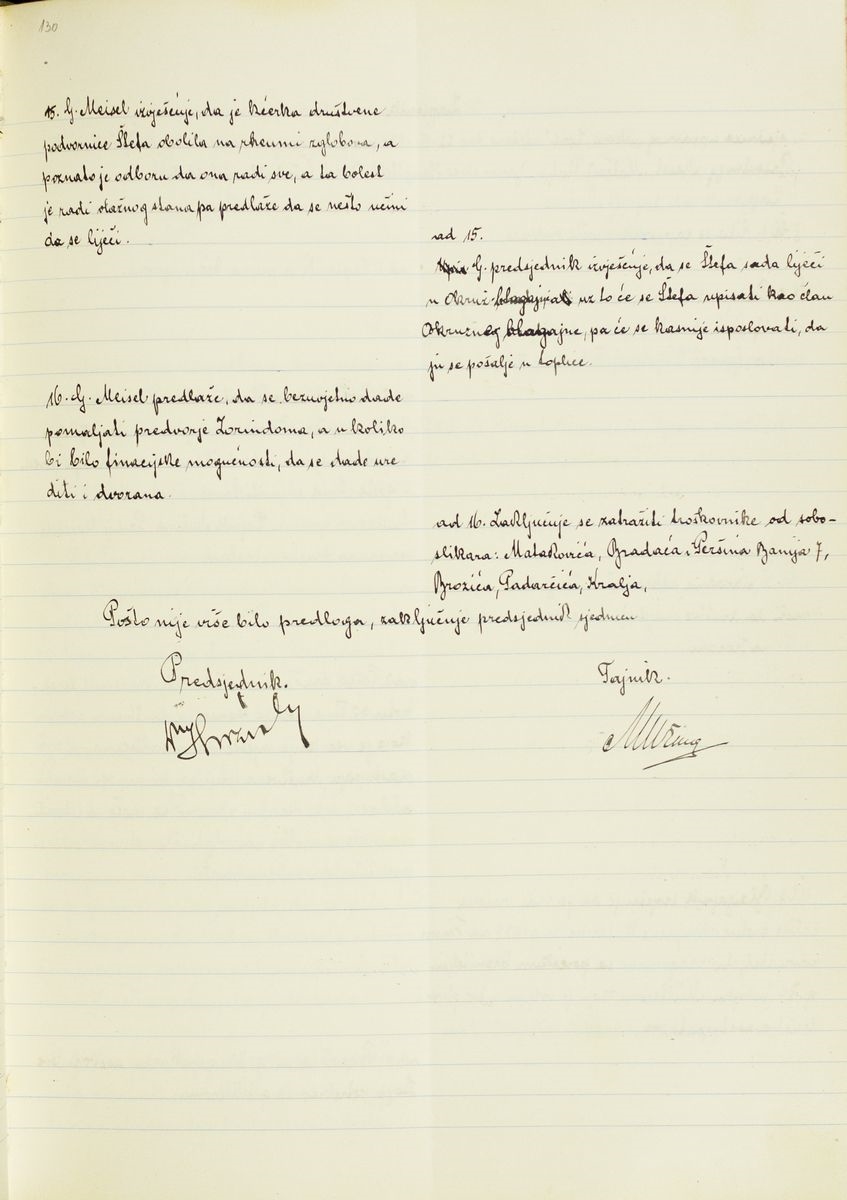 130
15. G. Meisel izvješćuje, da je kćerka društvene
podvornice Štefa obolila na rheumi zglobova, a
poznato je odboru da ona radi sve, a ta bolest
je radi vlažnog stana pa predlaže da se nešto učini
da se liječi.
ad 15.
G. predsjednik izvješćuje, da se Štefa sada liječi
u Okruž. uz to će se Štefa upisati kao član
Okružnog blagajne, pa će se kasnije isposlovati, da
ju se pošalje u toplice.
16. G. Meisel predlaže, da se bezuvjetno dade
pomaljati predvorje Zorindoma, a u koliko
bi bilo finacijske mogućnosti, da se dade ure
diti i dvorana.
ad 16. Zaključuje se zatražiti troškovnike od sobo-
slikara: Matakovića, Bradaća i Peršina Banija 7,
Brozića, Padarčića, Kralja,
Pošto nije više bilo predloga, zaključuje predsjednik sjednicu
Predsjednik.
Tajnik.